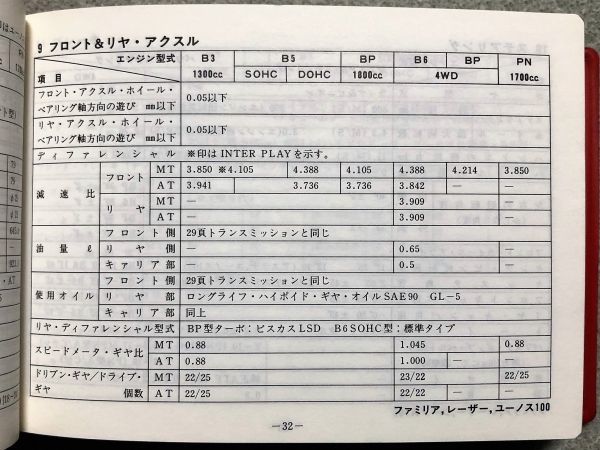 9 フロント&リヤ・アクスル
エンジン型式 B3 B5 BP B6 BP PN
項目 1300cc SOHC DOHC 1800cc 4WD 1700cc
フロント・アクスル・ホイール・
ベアリング軸方向の遊び ㎜以下 0.05以下
リヤ・アクスル・ホイール・
ベアリング軸方向の遊び ㎜以下 0.05以下
ディファレンシャル ※印はINTER PLAYを示す。
減速比 フロント MT 3.850 ※4.105 4.388 4.105 4.388 4.214 3.850
AT 3.941 3.736 3.736 3.842 — —
リヤ MT 3.909 —
AT 3.909 —
油量ℓ フロント側 29頁トランスミッションと同じ
リヤ側 — 0.65 —
キャリア部 — 0.5 —
使用オイル フロント側 29頁トランスミッションと同じ
リヤ部 ロングライフ・ハイポイド・ギヤ・オイルSAE90 GL-5
キャリア部 同上
リヤ・ディファレンシャル型式 BP型ターボ:ビスカスLSD B6SOHC型:標準タイプ
スピードメータ・ギヤ比 MT 0.88 1.045 0.88
AT 0.88 1.000 — —
ドリブン・ギヤ/ドライブ・
ギヤ 個数 MT 22/25 23/22 22/25
AT 22/25 22/22 — —
ファミリア,レーザー,ユーノス100
—32—